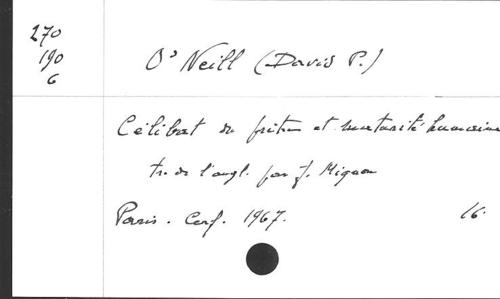 270
190
6
O'Neill (David P.)
Célibat du prêtre et maturité humaine
tr. de l'angl. par J. Mignon
Paris. Cerf. 1967. 16.